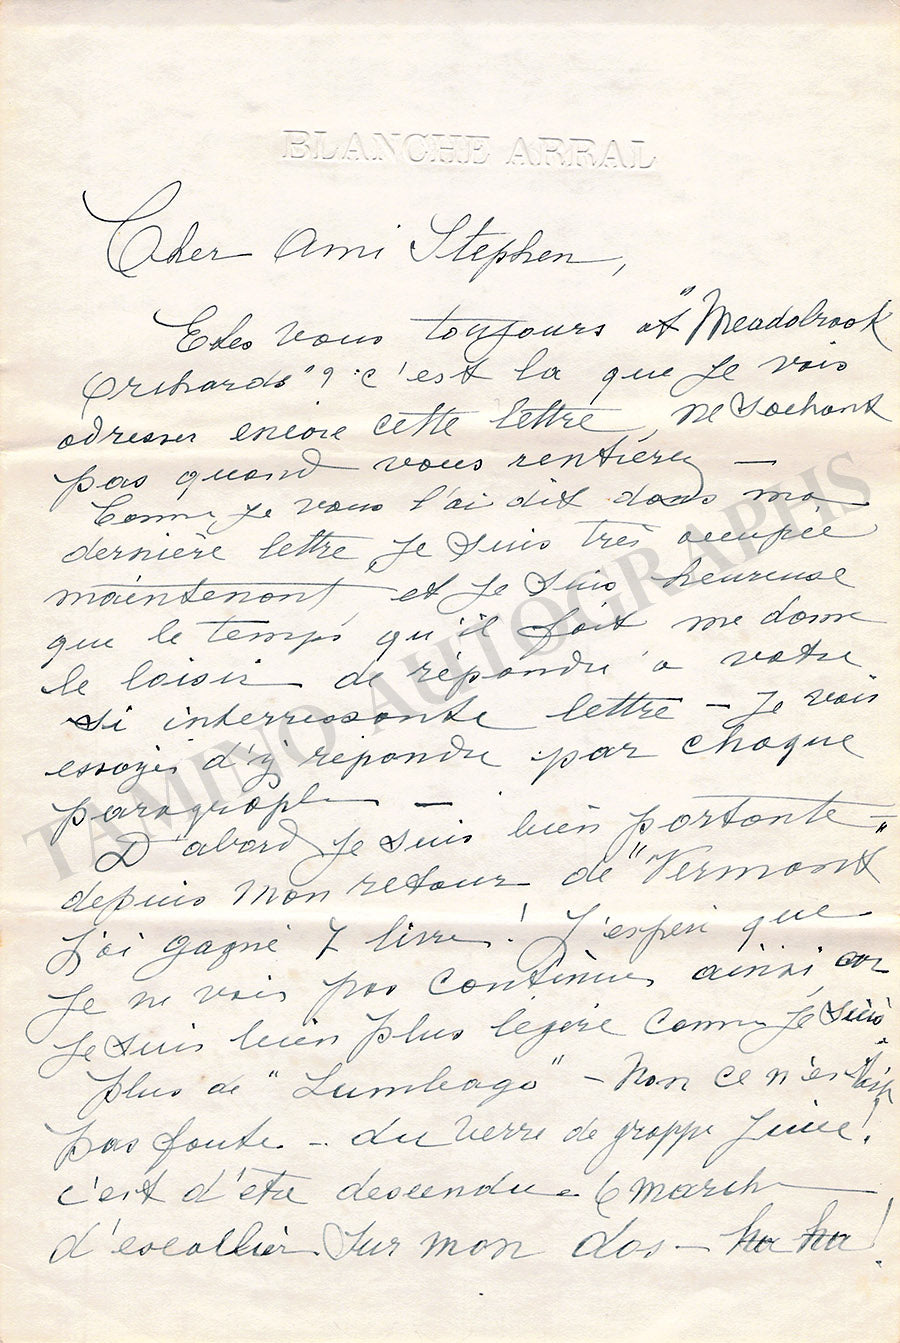 BLANCHE ARRAL
Cher Ami Stephen,
Etes vous toujours at "Meadobrook
Orchards"? c'est la que je vais
adresser encore cette lettre, ne sachant
pas quand vous rentièrez —
Comme je vous l'ai dit dans ma
dernière lettre, je suis très occupée
maintenant, et je suis heureuse
que le temps qu'il fait me donne
le loisir de répondre a votre
si interressante lettre — Je vais
essayer d'y répondre par chaque
paragraphe —
D'abord je suis bien portante —
depuis mon retour de "Vermont"
j'ai gagné 7 livres! J'espère que
je ne vais pas continuer ainsi car
je suis bien plus légère comme je suis.
plus de "Lumbago" — Non ce n'est
pas faute — du verre de grappe Juice!
c'est d'être descendue 6 march
d'escallier sur mon dos — ha ha!
TAMINO AUTOGRAPHS